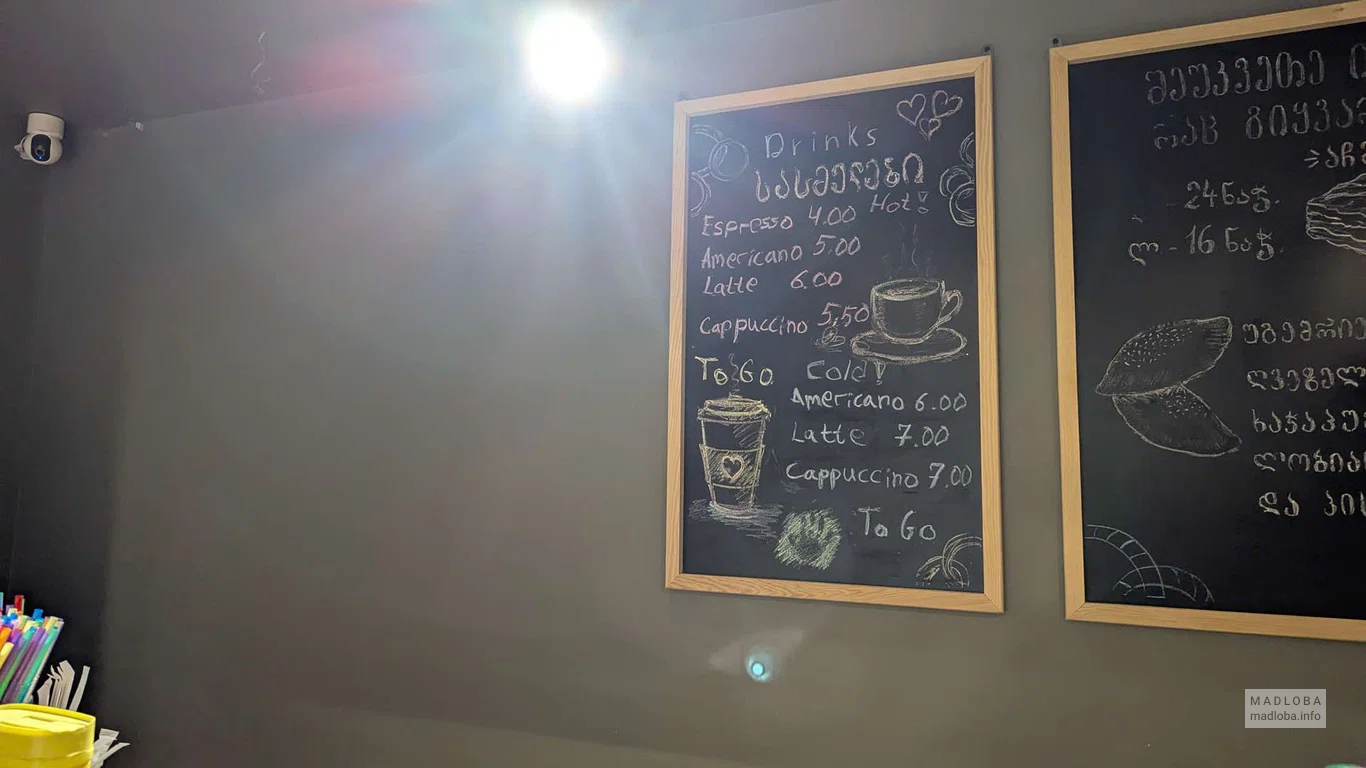 Drinks
სასმელები
Hot!
Espresso 4.00
Americano 5.00
Latte 6.00
Cappuccino 5,50
To Go
Cold!
Americano 6.00
Latte 7.00
Cappuccino 7.00
To Go
შეუკვეთე
რაც გიყვა
24 ნაჭ.
ლ - 16 ნაჭ.
უგემრიე
ღვეზელ
ხაჭაპუ
ლობია
და პი
MADLOBA
madloba.info